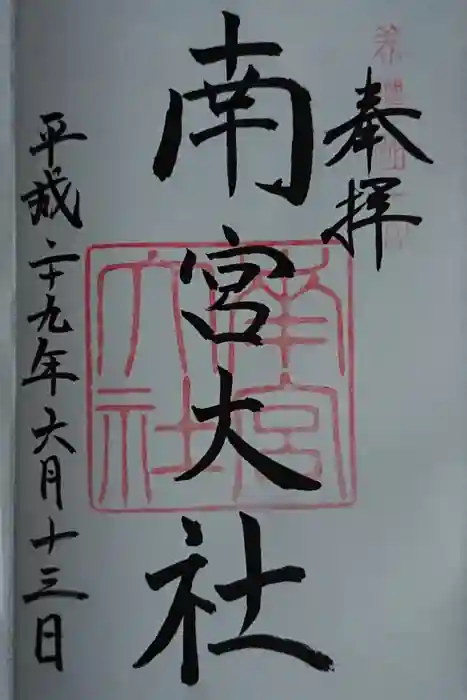 奉拝
南宮大社
平成二十九年六月十三日
南宮大社